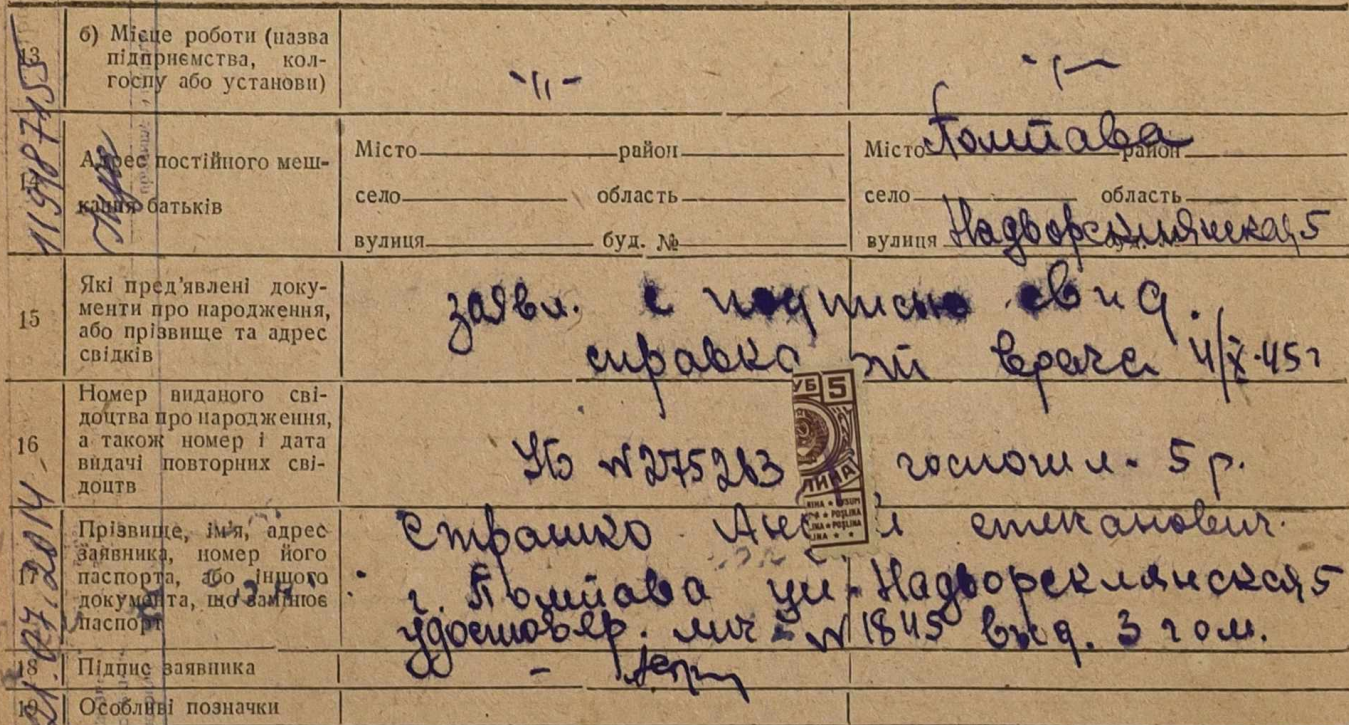 13 б) Місце роботи (назва
підприємства, кол-
госпу або установи)
-〃- -〃-
Адрес постійного меш-
кання батьків
Місто район Місто Полтава район
село область село область
вулиця буд. № вулиця Надворсклянская 5
15 Які пред'явлені доку-
менти про народження,
або прізвище та адрес
свідків
заявл. с подписью свид.
справка от врача 4/X-45г
16 Номер виданого сві-
доцтва про народження,
а також номер і дата
видачі повторних сві-
доцтв
№275283 госпошл. 5 р.
УБ 5
17 Прізвище, ім'я, адрес
заявника, номер його
паспорта, або іншого
документа, що замінює
паспорт
Страшко степанович.
г. Полтава ул. Надворсклянская 5
удостовер. лич. №1845 выд. 3 г о м.
18 Підпис заявника -
19 Особливі позначки